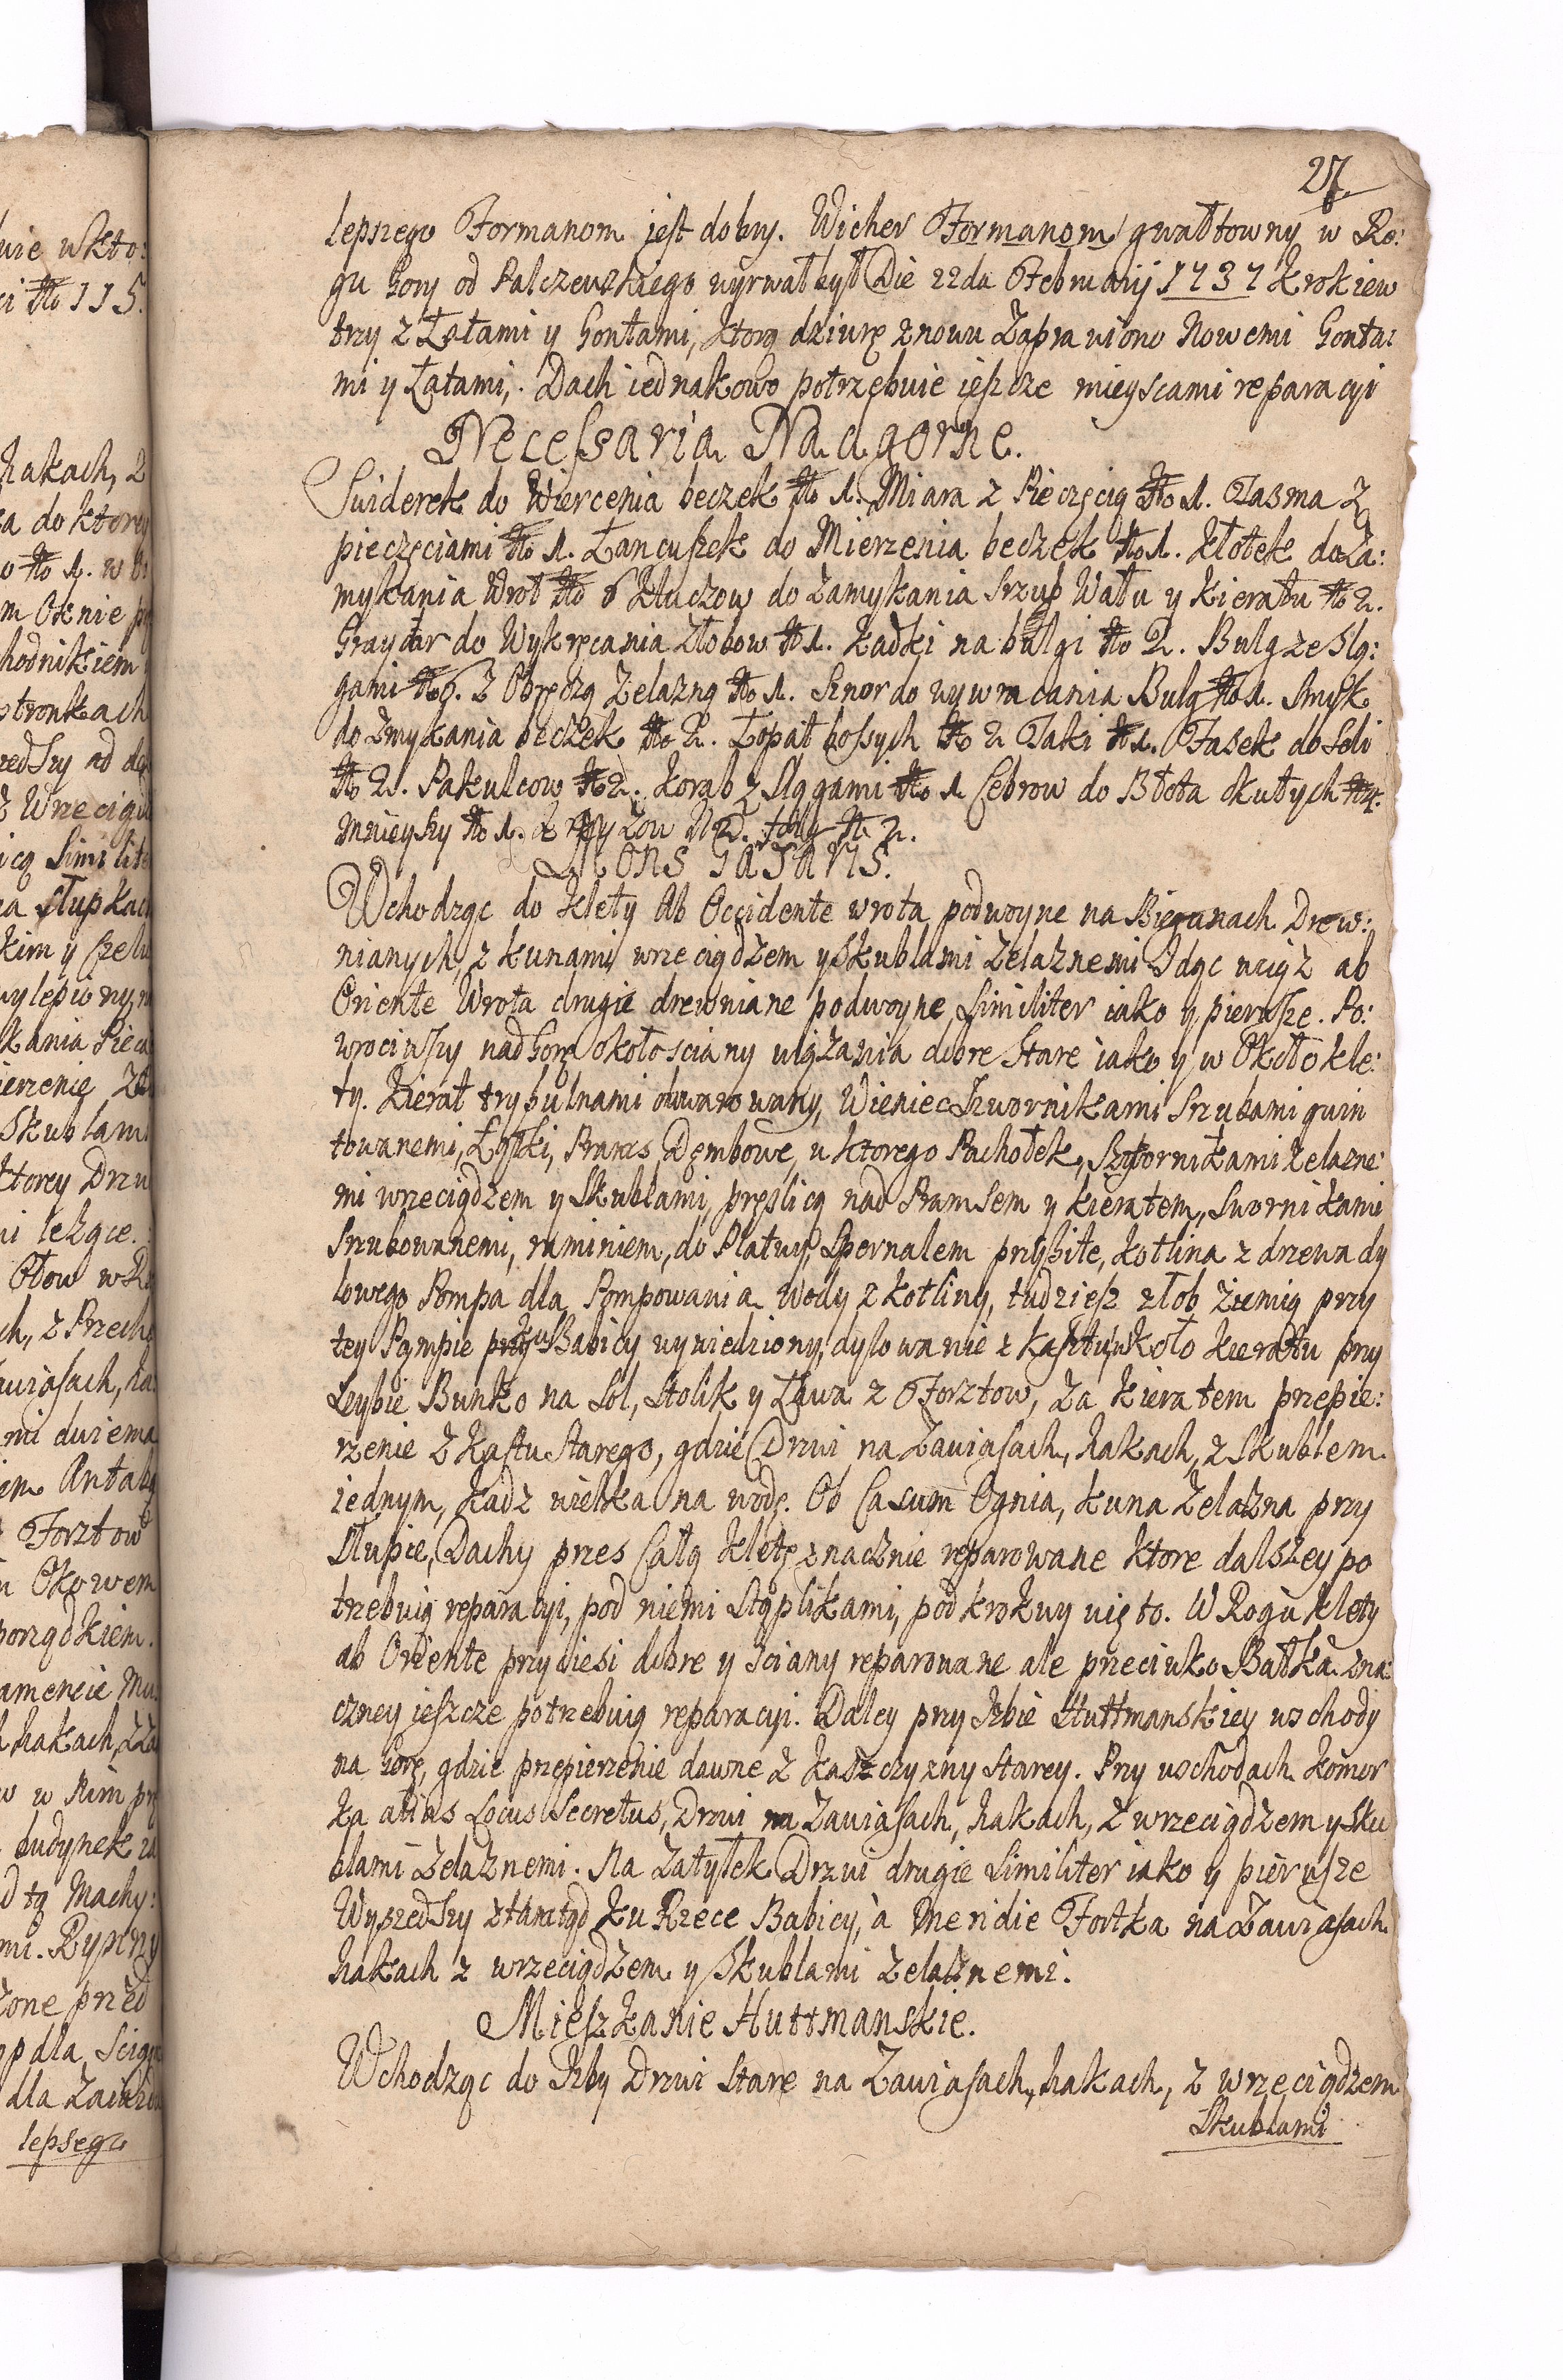 27
lepszego Formanom jest dobry. Wicher Formanom gwałtowny w Ro:
gu Gory od Palczewskiego wyrwał był Die 22da Februarij 1737 krokiew
trzy z Łatami y Gontami, ktorą dziurę znowu Zaprawiono Nowemi Gonta:
mi y Łatami, Dach iednakowo potrzebuie ieszcze mieyscami reparacyi
Necessaria Nadgorne.
Swiderek do Wiercenia beczek No 1. Miara z Pieczęcią No 1. Tasma z
pieczęciami No 1. Łancuszek do Mierzenia beczek No 1. Kłotek do Za:
mykania Wrot No 6 Kluczow do Zamykania Szrub Wału y Kieratu No 2.
Graycar do Wykręcania Złobow No 1. Kadki na bulgi No 2. Bulg ze Slą:
gami No 6. Z Obręczą Zelazną No 1. Sznor do wywracania Bulg No 1. Smyk
do Zmykania beczek No 2. Łopat bossych No 2 Taki No 1. Fasek do Soli
No 2. Pakulcow No 2. Korab z Slągami No 1 Cebrow do Błota okutych No 4.
mnieyszy No 1. No 2.
Mons Gasaris.
Wchodząc do Klety Ab Occidente wrota podwoyne na Biegunach Drew:
nianych, z kunami wrzeciądzem y Skublami Zelaznemi Idąc wciąż ab
Oriente Wrota drugie drewniane podwoyne, Similiter iako y pierwsze. Po:
wrociwszy nad Gorę Około sciany wiązania dobre Stare iako y w Około Kle:
ty. Kierat trybulnami obwarowany, Wieniec Szwornikami Szrubami gwin
towanemi, Łątki, Prams Dębowe, u ktorego Pachołek, Szwornikami Zelazne:
mi wrzeciądzem y Skublami, pręslicą nad Pramsem y kieratem, Swornikami
Szrubowanemi, raminiem, do Płatwy Spernalem przybite, Kotlina z drzewa dy
lowego Pompa dla Pompowania Wody z kotliny, tudziesz złob Ziemią przy
tey Pompie ku Babicy wywiedziony, dylowanie z Kasztu w koło Kieratu przy
Szybie Bunko na Sol, Stolik y Ława z Forsztow, Za kieratem przepie:
rzenie z Kasztu Starego, gdzie Drzwi na Zawiasach, hakach, z Skublem
iednym, Kadz wielka na wodę. Ob Casum Ognia, kuna Zelazna przy
Słupie, Dachy przes Całą Kletę znacznie reparowane ktore dalszey po
trzebuią reparacyi, pod niemi Stąplikami, pod krokwy więto. W Rogu Klety
ab Oriente przyciesi dobre y Sciany reparowane ale przeciwko Bałka zna:
czney ieszcze potrzebuią reparacyi. Daley przy Izbie Huttmanskiey wschody
na Gorę, gdzie przepierzenie dawne z Kaszczyzny Starey. Przy wschodach Komor
ka alias Locus Secretus, Drzwi na Zawiasach, hakach, z wrzeciądzem y Sku
blami Zelaznemi. Na Zatyłek Drzwi drugie Similiter iako y pierwsze
Wyszedszy ztamtąd ku Rzece Babicy, à Meridie Fortka na Zawiasach
hakach z wrzeciądzem y Skublami Zelaznemi.
Mieszkanie Huttmanskie.
Wchodząc do Izby Drzwi Stare na Zawiasach, hakach, z wrzeciądzem
Skublami